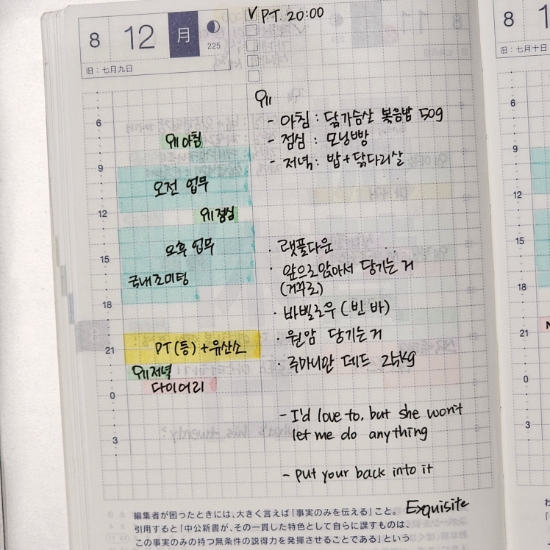 8 12 月 225
旧：七月九日
✓ PT. 20:00
6
9
12
15
18
21
0
3
아침
오전 업무
점심
오후 업무
국내조미팅
PT(등) + 유산소
저녁
다이어리
- 아침 : 닭가슴살 볶음밥 50g
- 점심 : 모닝빵
- 저녁 : 밥 + 닭다리살
· 랫풀다운
· 앞으로앉아서 당기는 거
(거꾸로)
· 바벨로우 (빈 바)
· 원암 당기는거
· 루마니안 데드 25kg
- I'd love to, but she won't
let me do anything
- Put your back into it
Exquisite
編集者が困ったときには、大きく言えば「事実のみを伝える」こと。
引用すると「中公新書が、その一貫した特色として自らに課すものは、
この事実のみの持つ無条件の説得力を発揮させることである」という
8
旧：七月十日
6
9
12
15
18
21
0
3